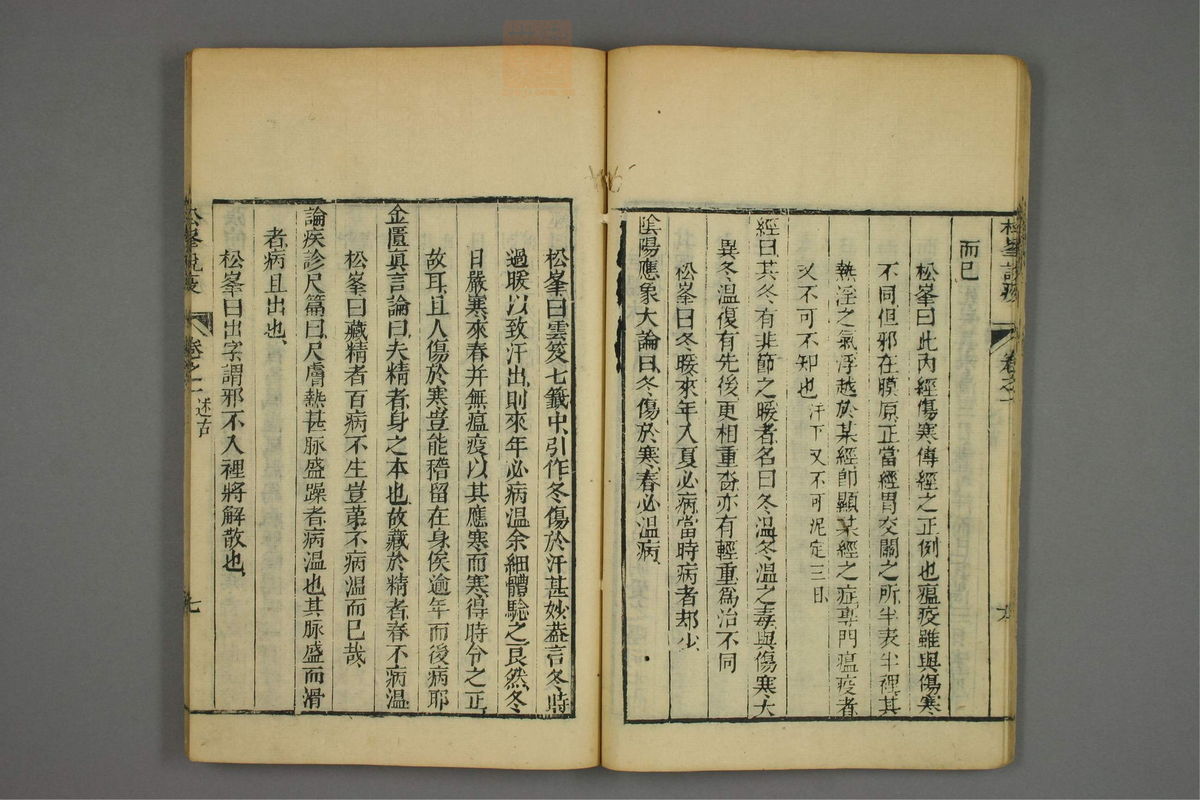 松峯說疫
卷之一
六
而已
松峯曰此內經傷寒傳經之正例也瘟疫雖與傷寒
不同但邪在膜原正當經胃交關之所半表半裡其
熱淫之氣浮越於某經卽顯某經之症專門瘟疫者
又不可不知也汗下又不可泥定三日
經曰其冬有非節之暖者名曰冬溫冬溫之毒與傷寒大
異冬溫復有先後更相重沓亦有輕重爲治不同
松峯曰冬暖來年入夏必病當時病者却少
陰陽應象大論曰冬傷於寒春必溫病
松峯曰雲笈七籤中引作冬傷於汗甚妙蓋言冬時
過暖以致汗出則來年必病溫余細體驗之良然冬
日嚴寒來春并無瘟疫以其應寒而寒得時令之正
故耳且人傷於寒豈能稽留在身俟逾年而後病耶
金匱眞言論曰夫精者身之本也故藏於精者春不病溫
松峯曰藏精者百病不生豈第不病溫而已哉
論疾診尺篇曰尺膚熱甚脉盛躁者病溫也其脉盛而滑
者病且出也
松峯曰出字謂邪不入裡將解散也
松峯說疫
卷之一
述古
七